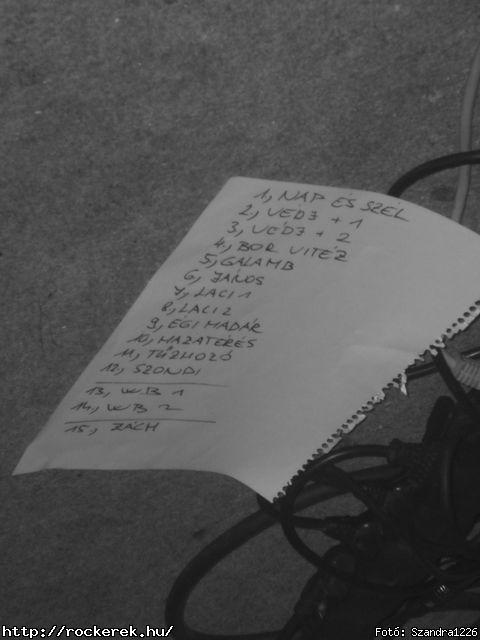 1, NAP ÉS SZÉL
2, VÉDJ + 1
3, VÉDJ + 2
4, BOR VITÉZ
5, GALAMB
6, JÁNOS
7, LACI 1
8, LACI 2
9, ÉGI MADÁR
10, HAZATÉRÉS
11, TŰZHOZÓ
12, SZONDI
13, W.B 1
14, W.B 2
15, ZÁCH
http://rockerek.hu/
Fotó: Szandra1226